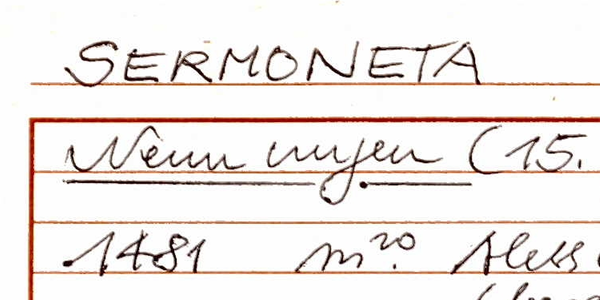 SERMONETA
Nennungen (15.
1481 m.ro Aless